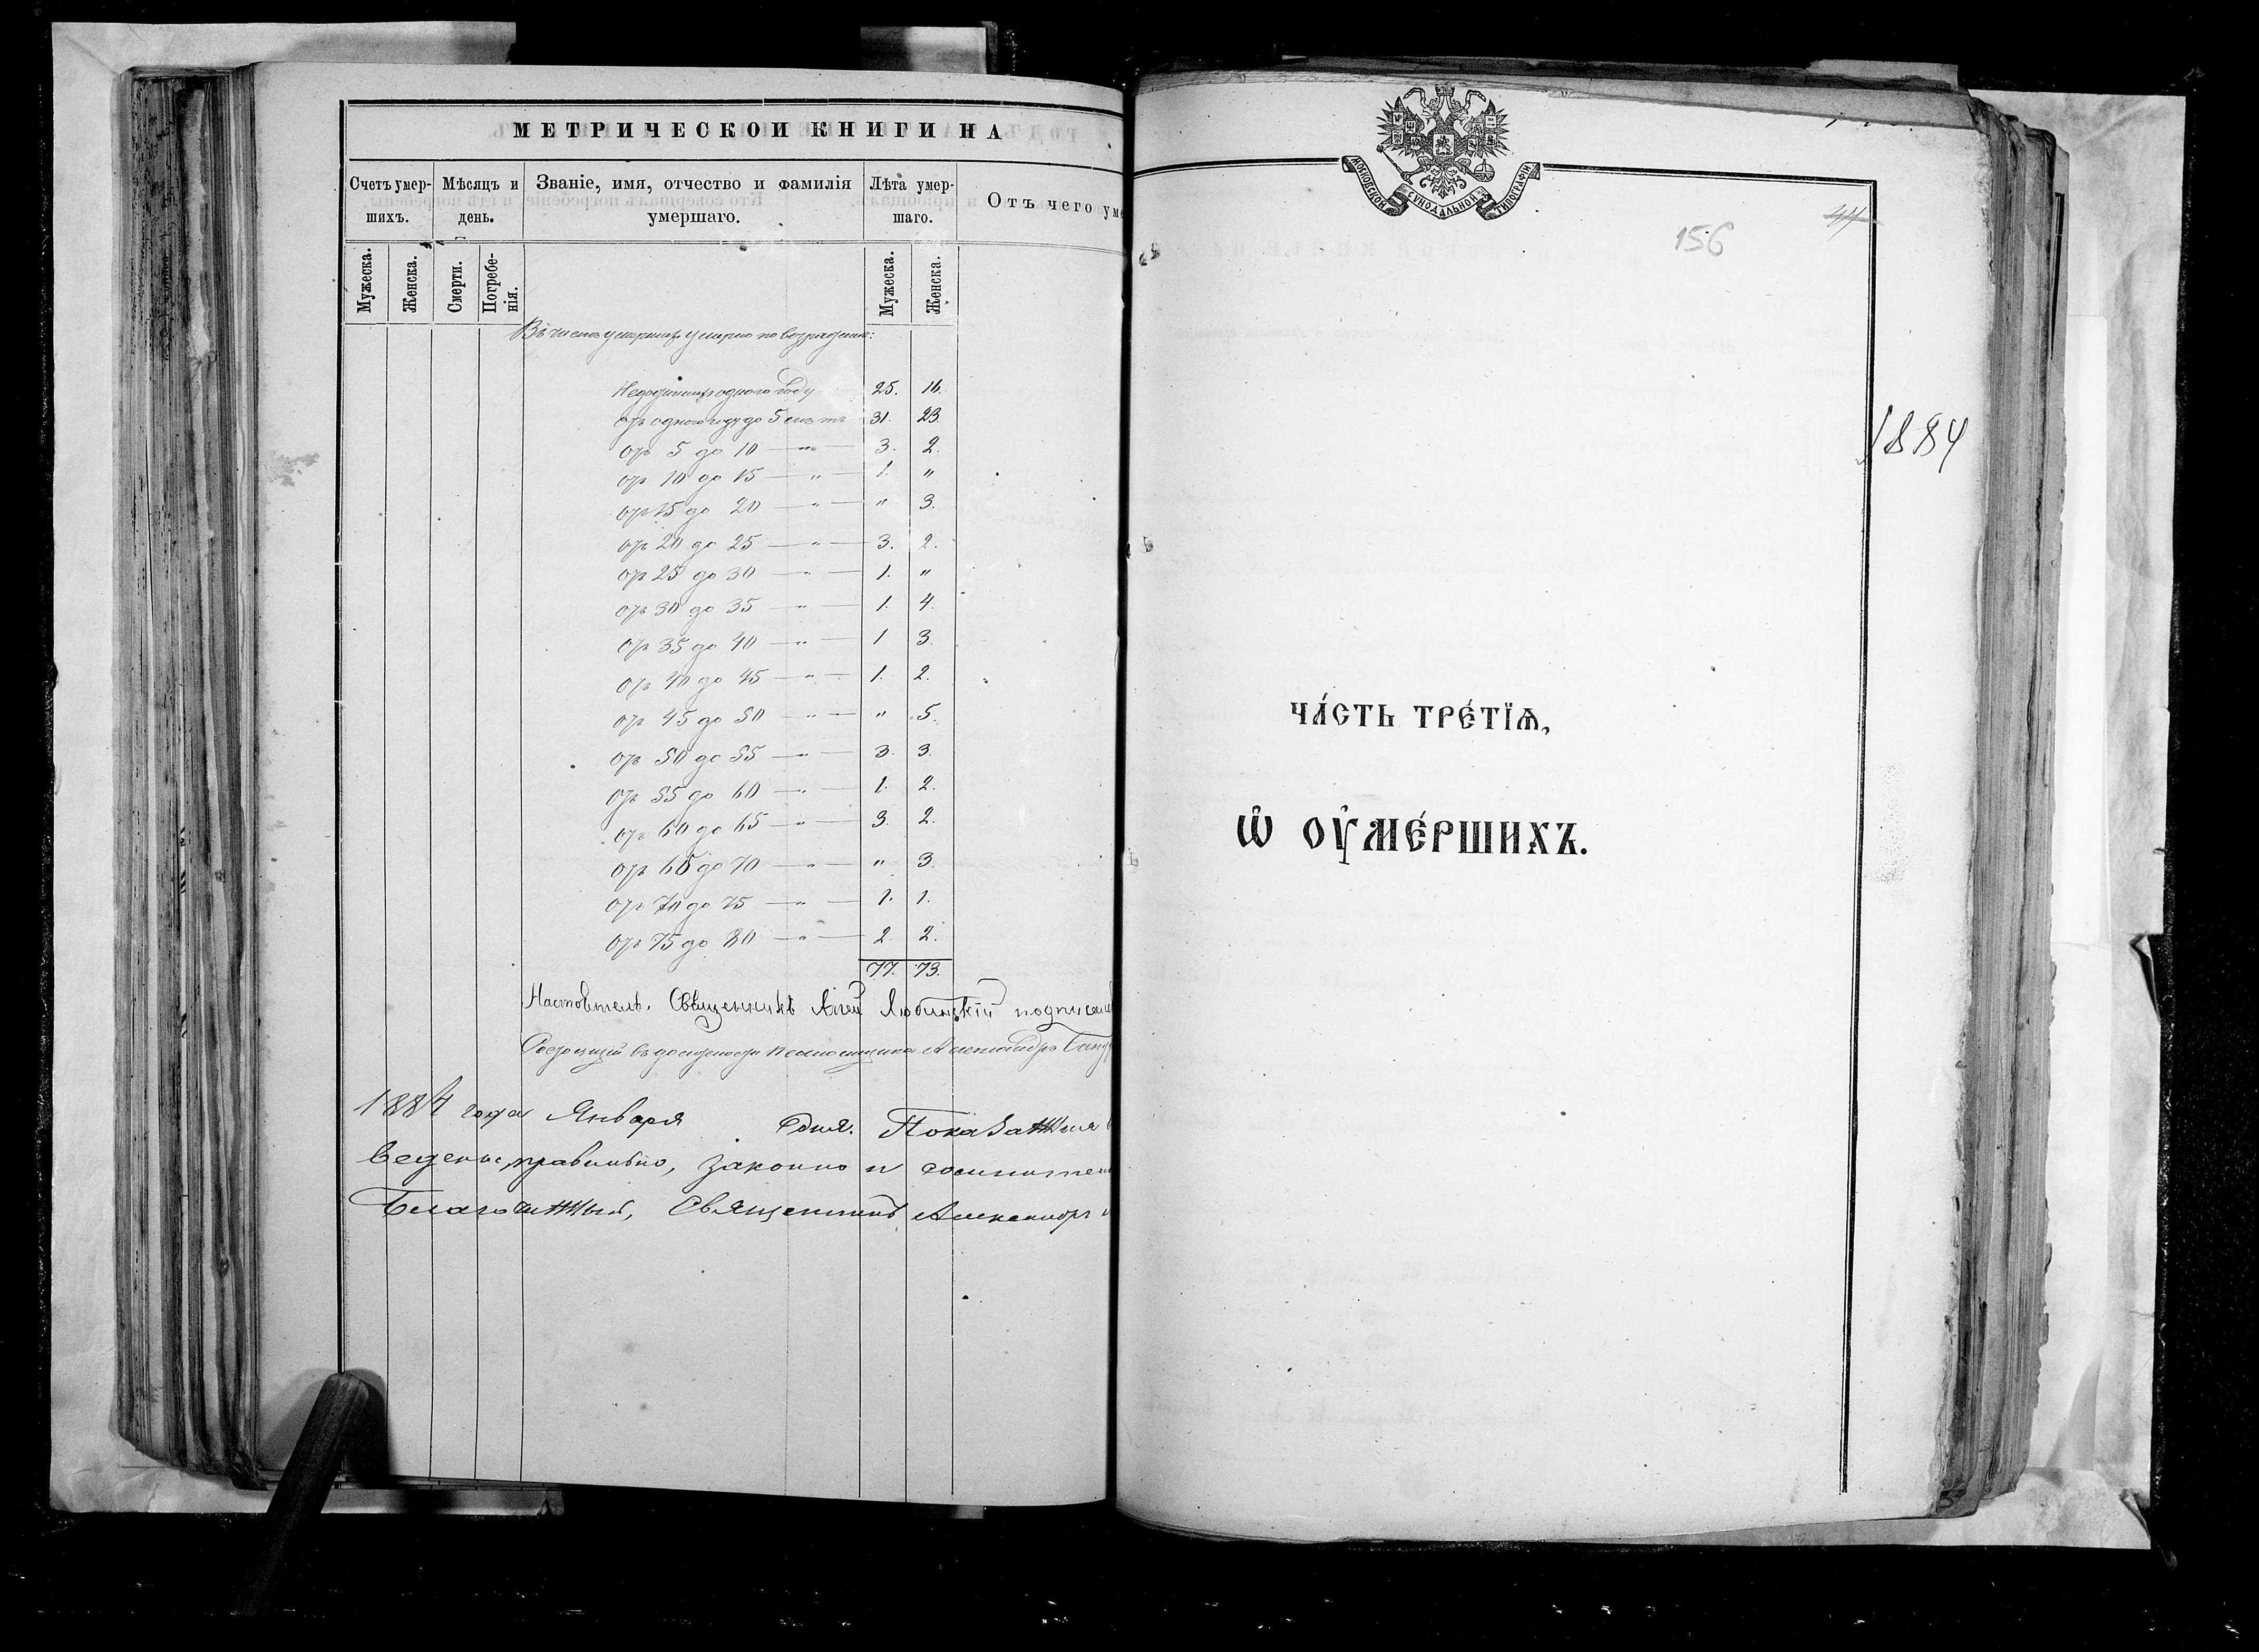 МЕТРИЧЕСКОЙ КНИГИ НА
Счетъ умер-
шихъ.
Мѣсяцъ и
день.
Званіе, имя, отчество и фамилія
умершаго.
Лѣта умер-
шаго.
Отъ чего уме
Мужеска.
Женска.
Смерти.
Погребе-
нія.
Мужеска.
Женска.
Въ числѣ умершихъ умерло по возрастамъ:
Недостигшихъ одного году 25. 16.
отъ одного году до 5 лѣтъ 31. 23.
отъ 5 до 10 — „ — 3. 2.
отъ 10 до 15 — „ — 1. „
отъ 15 до 20 — „ — „ 3.
отъ 20 до 25 — „ — 3. 2.
отъ 25 до 30 — „ — 1. „
отъ 30 до 35 — „ — 1. 4.
отъ 35 до 40 — „ — 1 3.
отъ 40 до 45 — „ — 1. 2.
отъ 45 до 50 — „ — „ 5.
отъ 50 до 55 — „ — 3. 3.
отъ 55 до 60 — „ — 1. 2.
отъ 60 до 65 — „ — 3. 2.
отъ 65 до 70 — „ — „ 3.
отъ 70 до 75 — „ — 1. 1.
отъ 75 до 80 — „ — 2. 2.
77. 73.
Настоятель, Священникъ Любинскій
Состоящій въ должности псаломщика Александръ
1884 года Января дня. Показанныя
ведены правильно, законно и
Благочинный, Священникъ Александръ
МОСКОВСКОЙ СѴНОДАЛЬНОЙ ТИПОГРАФІИ
44
156
1884
ЧА́СТЬ ТРЕ́ТЇѦ,
Ѡ҆ ОУ҆МЕ́РШИХЪ.